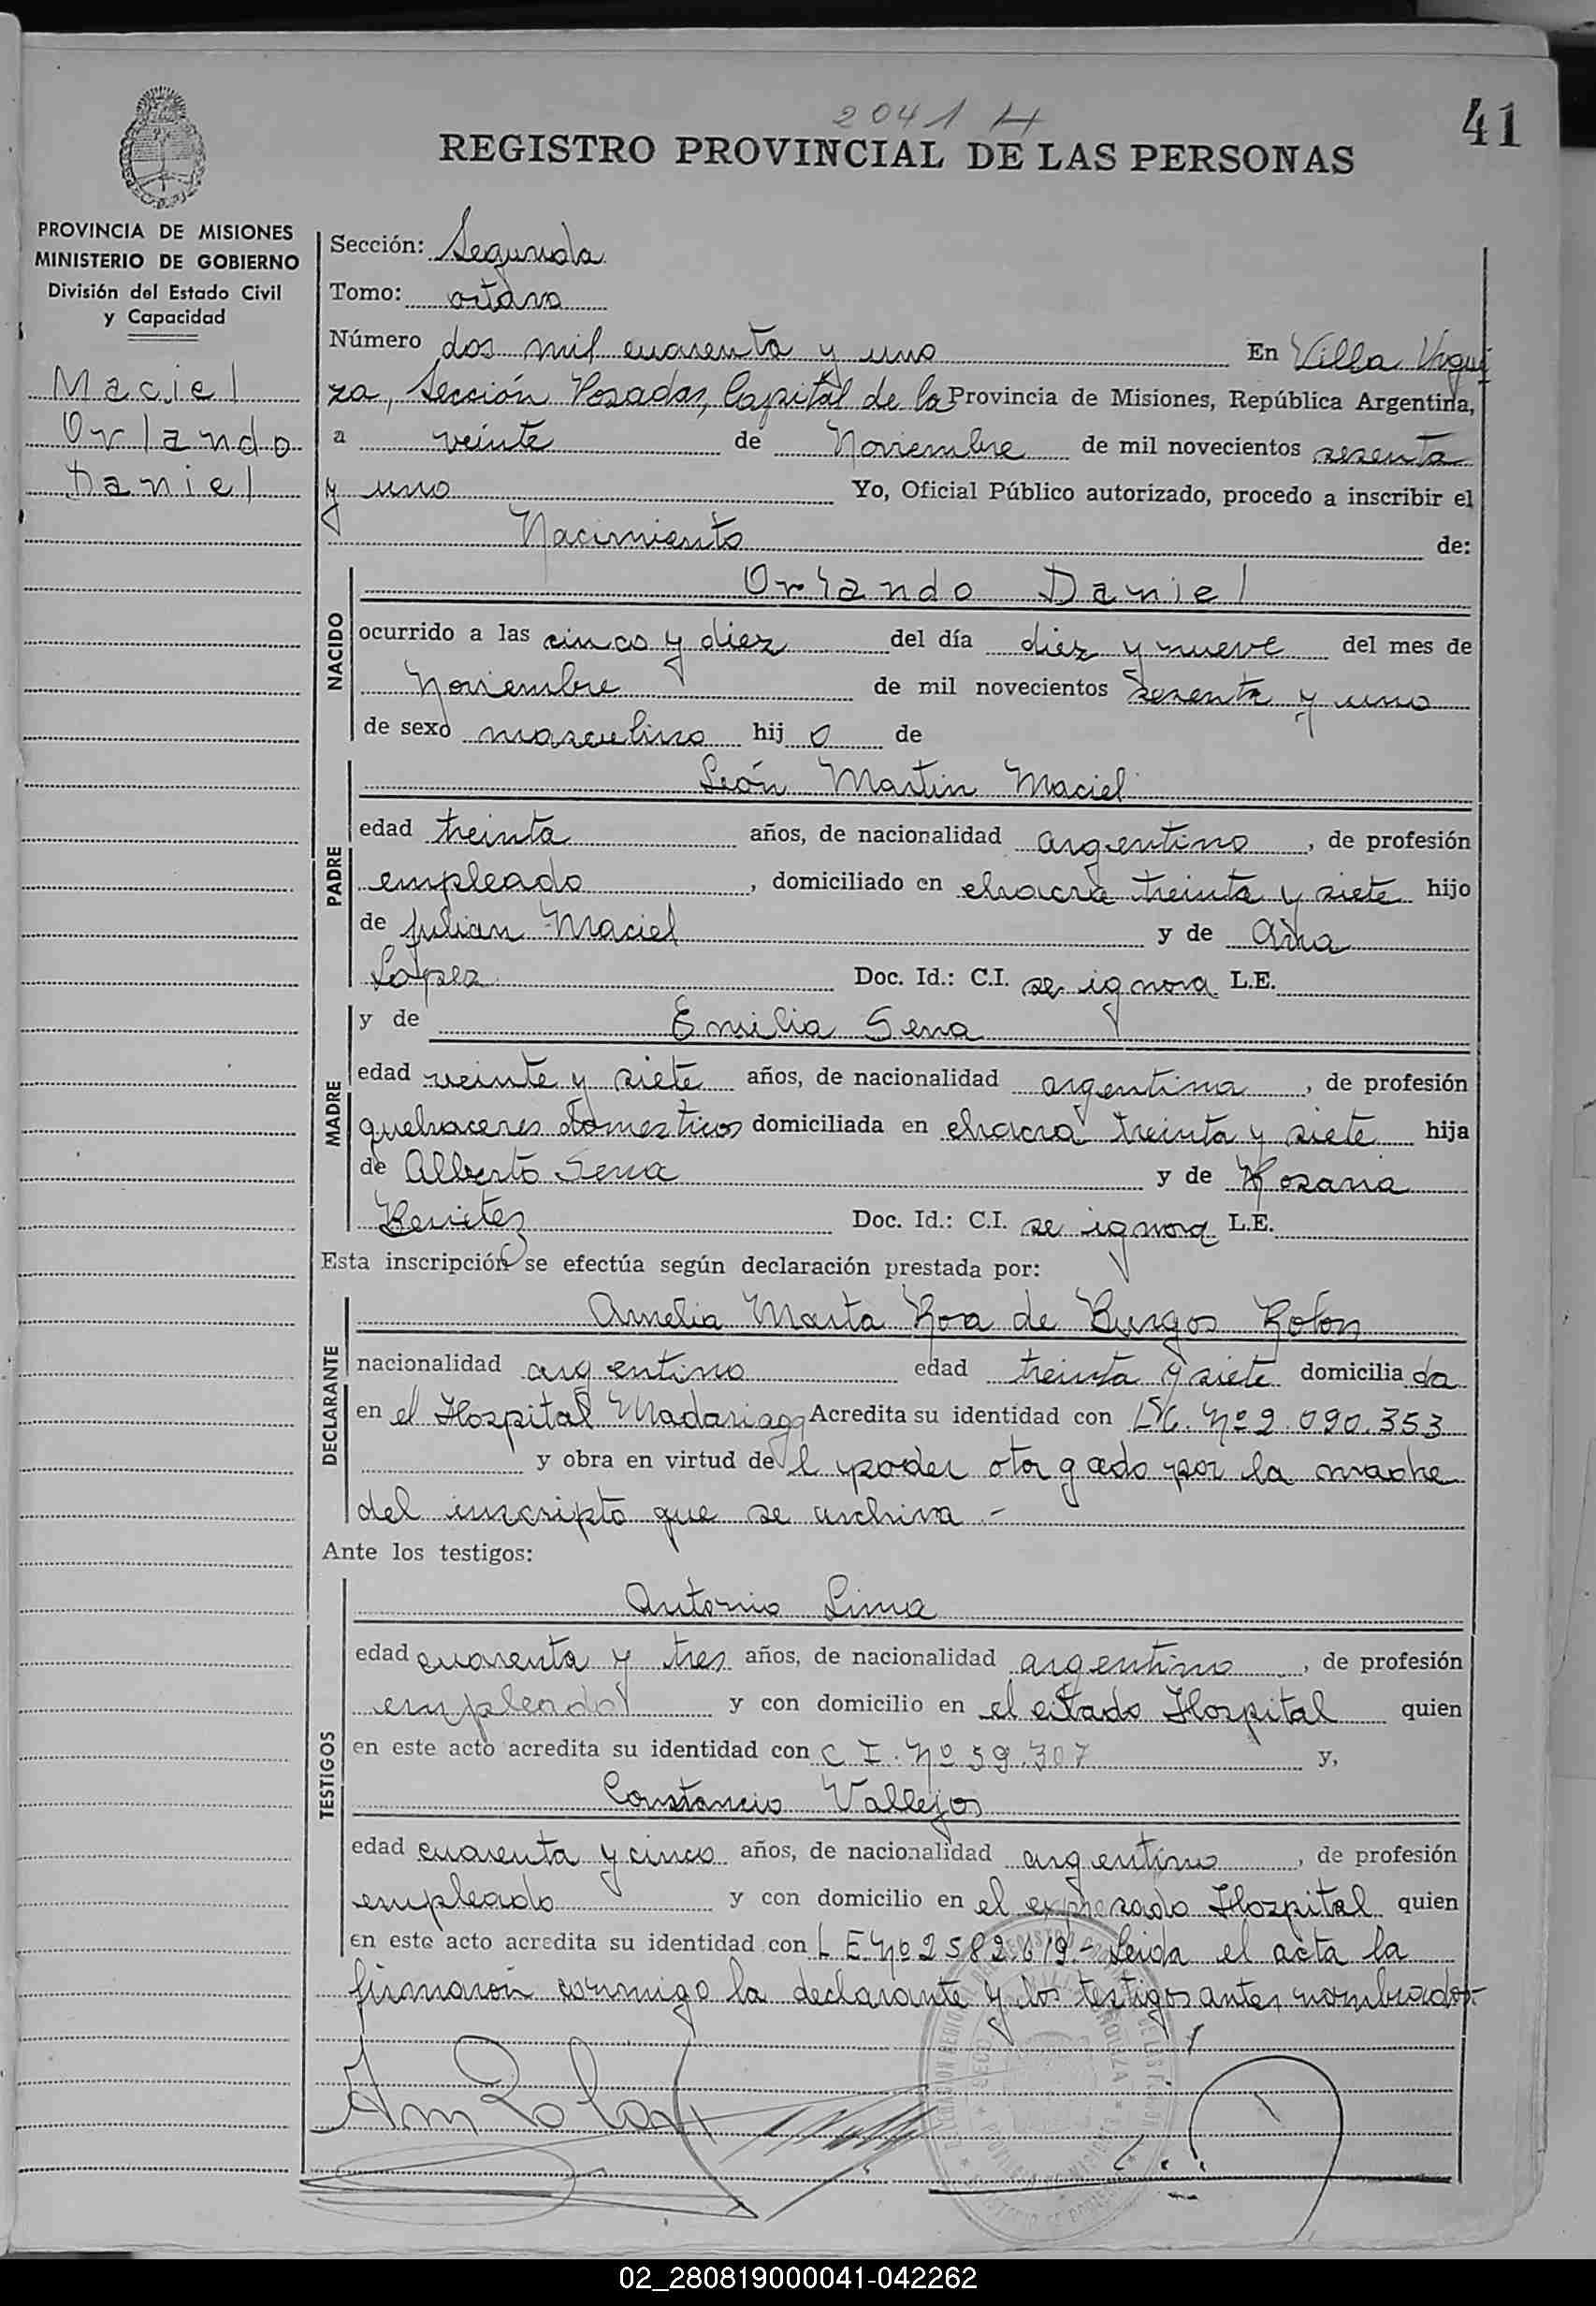 2041 H
41
REGISTRO PROVINCIAL DE LAS PERSONAS
PROVINCIA DE MISIONES
MINISTERIO DE GOBIERNO
División del Estado Civil
y Capacidad
Maciel
Orlando
Daniel
Sección: Segunda
Tomo: octavo
Número dos mil cuarenta y uno En Villa Urqui
za, Sección Posadas, Capital de la Provincia de Misiones, República Argentina,
a veinte de Noviembre de mil novecientos sesenta
y uno Yo, Oficial Público autorizado, procedo a inscribir el
Nacimiento de:
NACIDO
Orlando Daniel
ocurrido a las cinco y diez del día diez y nueve del mes de
Noviembre de mil novecientos sesenta y uno
de sexo masculino hij o de
PADRE
León Martin Maciel
edad treinta años, de nacionalidad argentino, de profesión
empleado, domiciliado en chacra treinta y siete hijo
de Julian Maciel y de Ana
Lopez Doc. Id.: C.I. se ignora L.E.
MADRE
y de Emilia Sena
edad veinte y siete años, de nacionalidad argentina, de profesión
quehaceres domesticos domiciliada en chacra treinta y siete hija
de Alberto Sena y de Rosaria
Benitez Doc. Id.: C.I. se ignora L.E.
Esta inscripción se efectúa según declaración prestada por:
DECLARANTE
Amelia Marta Roa de Burgos Rolon
nacionalidad argentino edad treinta y siete domicilia da
en el Hospital Madariaga Acredita su identidad con L.C. Nº 2.090.353
y obra en virtud de l poder otorgado por la madre
del inscripto que se archiva.-
Ante los testigos:
TESTIGOS
Antonio Lima
edad cuarenta y tres años, de nacionalidad argentino, de profesión
empleado y con domicilio en el citado Hospital quien
en este acto acredita su identidad con C.I. Nº 59.307 y,
Constancio Vallejos
edad cuarenta y cinco años, de nacionalidad argentino, de profesión
empleado y con domicilio en el expresado Hospital quien
en este acto acredita su identidad con L E. Nº 2582.619.- Leida el acta la
firmaron conmigo la declarante y los testigos antes nombrados.-
02_280819000041-042262